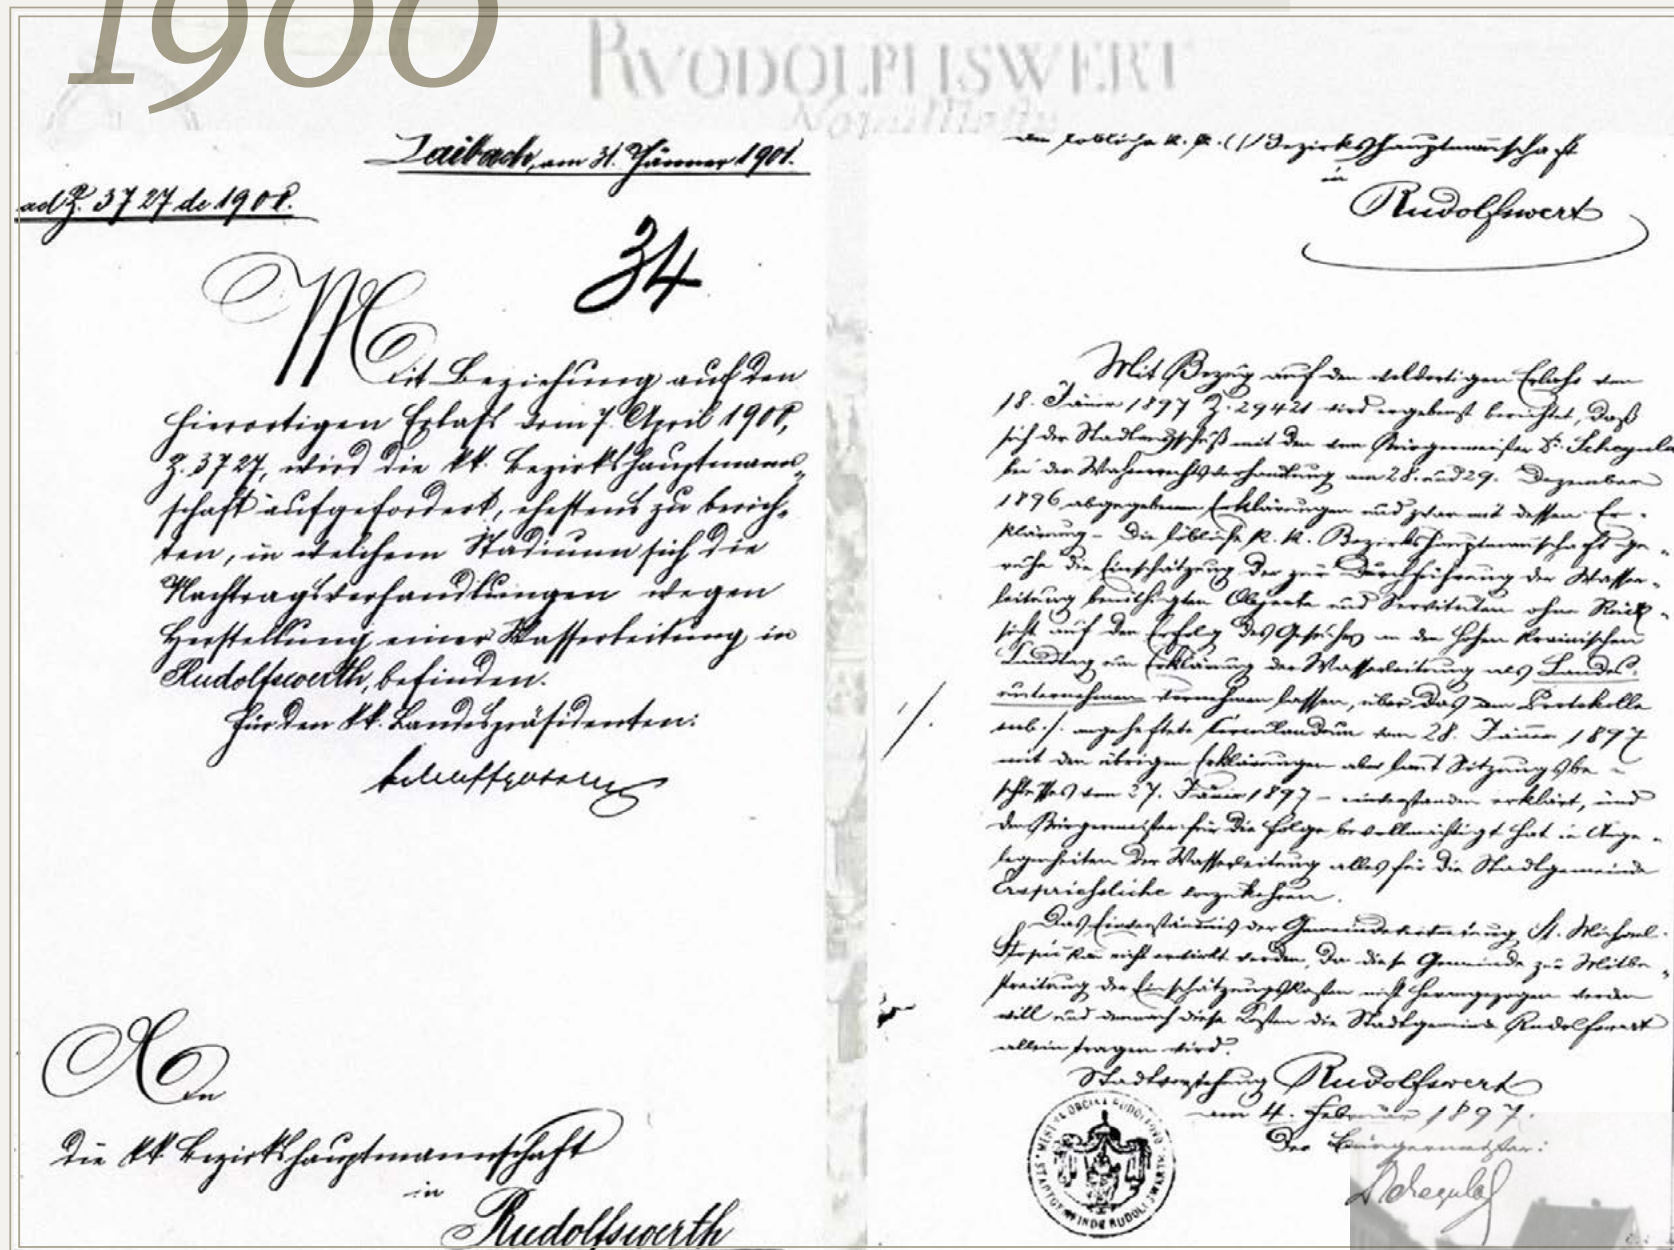 1900
RVODOLPHSWERT
Laibach, am 31. Jänner 1901.
ad Z. 3727 de 1900.
34
Mit Beziehung auf den
hierortigen Erlaß vom 7. April 1900,
Z. 3727, wird die kk. Bezirkshauptmann-
schaft aufgefordert, ehestens zu berich-
ten, in welchem Stadium sich die
Nachtragsverhandlungen wegen
Herstellung einer Wasserleitung in
Rudolfswerth, befinden.
Für den kk. Landespräsidenten:
An
die kk Bezirkshauptmannschaft
in
Rudolfswerth
löbliche k. k. Bezirkshauptmannschaft
in
Rudolfswert
Mit Bezug auf den Erlaß vom
18. Jänner 1897 Z. 29421 wird ergebenst berichtet, daß
sich der Stadtausschuß mit den vom Bürgermeister Dr. Schegula
bei der Wasserrechtsverhandlung am 28. und 29. Dezember
1896 abgegebenen Erklärungen und zwar mit dessen Er-
klärung – Die löbliche k. k. Bezirkshauptmannschaft ge-
ruhe die Einschätzung der zur Durchführung der Wasser-
leitung benöthigten Objecte und Servituten ohne Rück-
sicht auf den Erfolg des Gesuches an den hohen krainischen
Landtag um Erklärung der Wasserleitung als Landes-
unternehmen vornehmen lassen, über das dem Protokolle
sub ./. angeheftete vom 28. Jänner 1897
mit den übrigen Erklärungen aber laut Sitzungsbe-
schlusses vom 27. Jänner 1897 – einverstanden erklärt, und
den Bürgermeister für die Folge bevollmächtigt hat in Ange-
legenheiten der Wasserleitung alles für die Stadtgemeinde
Ersprießliche vorzukehren.
./.
Das Einverständnis der Gemeindevertretung St. Michael-
Stopič kann nicht erwirkt werden, da diese Gemeinde zur Mitbe-
streitung der Einschätzungskosten nicht herangezogen werden
will und demnach diese Kosten die Stadtgemeinde Rudolfswert
allein tragen wird.
Stadtvorstehung Rudolfswert
am 4. Februar 1897.
Der Bürgermeister:
Schegula
MESTNA OBČINA RUDOLFOVO
STADTGEMEINDE RUDOLFSWERTH